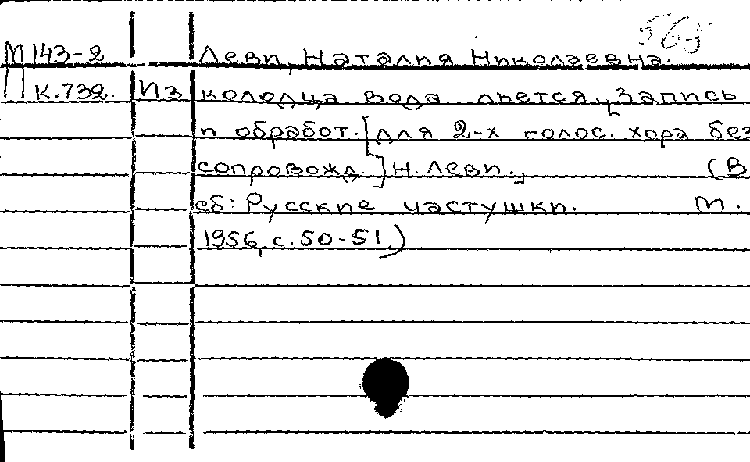 565
М143-2 Леви, Наталия Николаевна.
П К.732. Из колодца вода льется. [Запись
и обработ. [для 2-х голос. хора без
сопровожд.] Н. Леви.] (В
сб: Русские частушки. М.
1956, с. 50-51.)